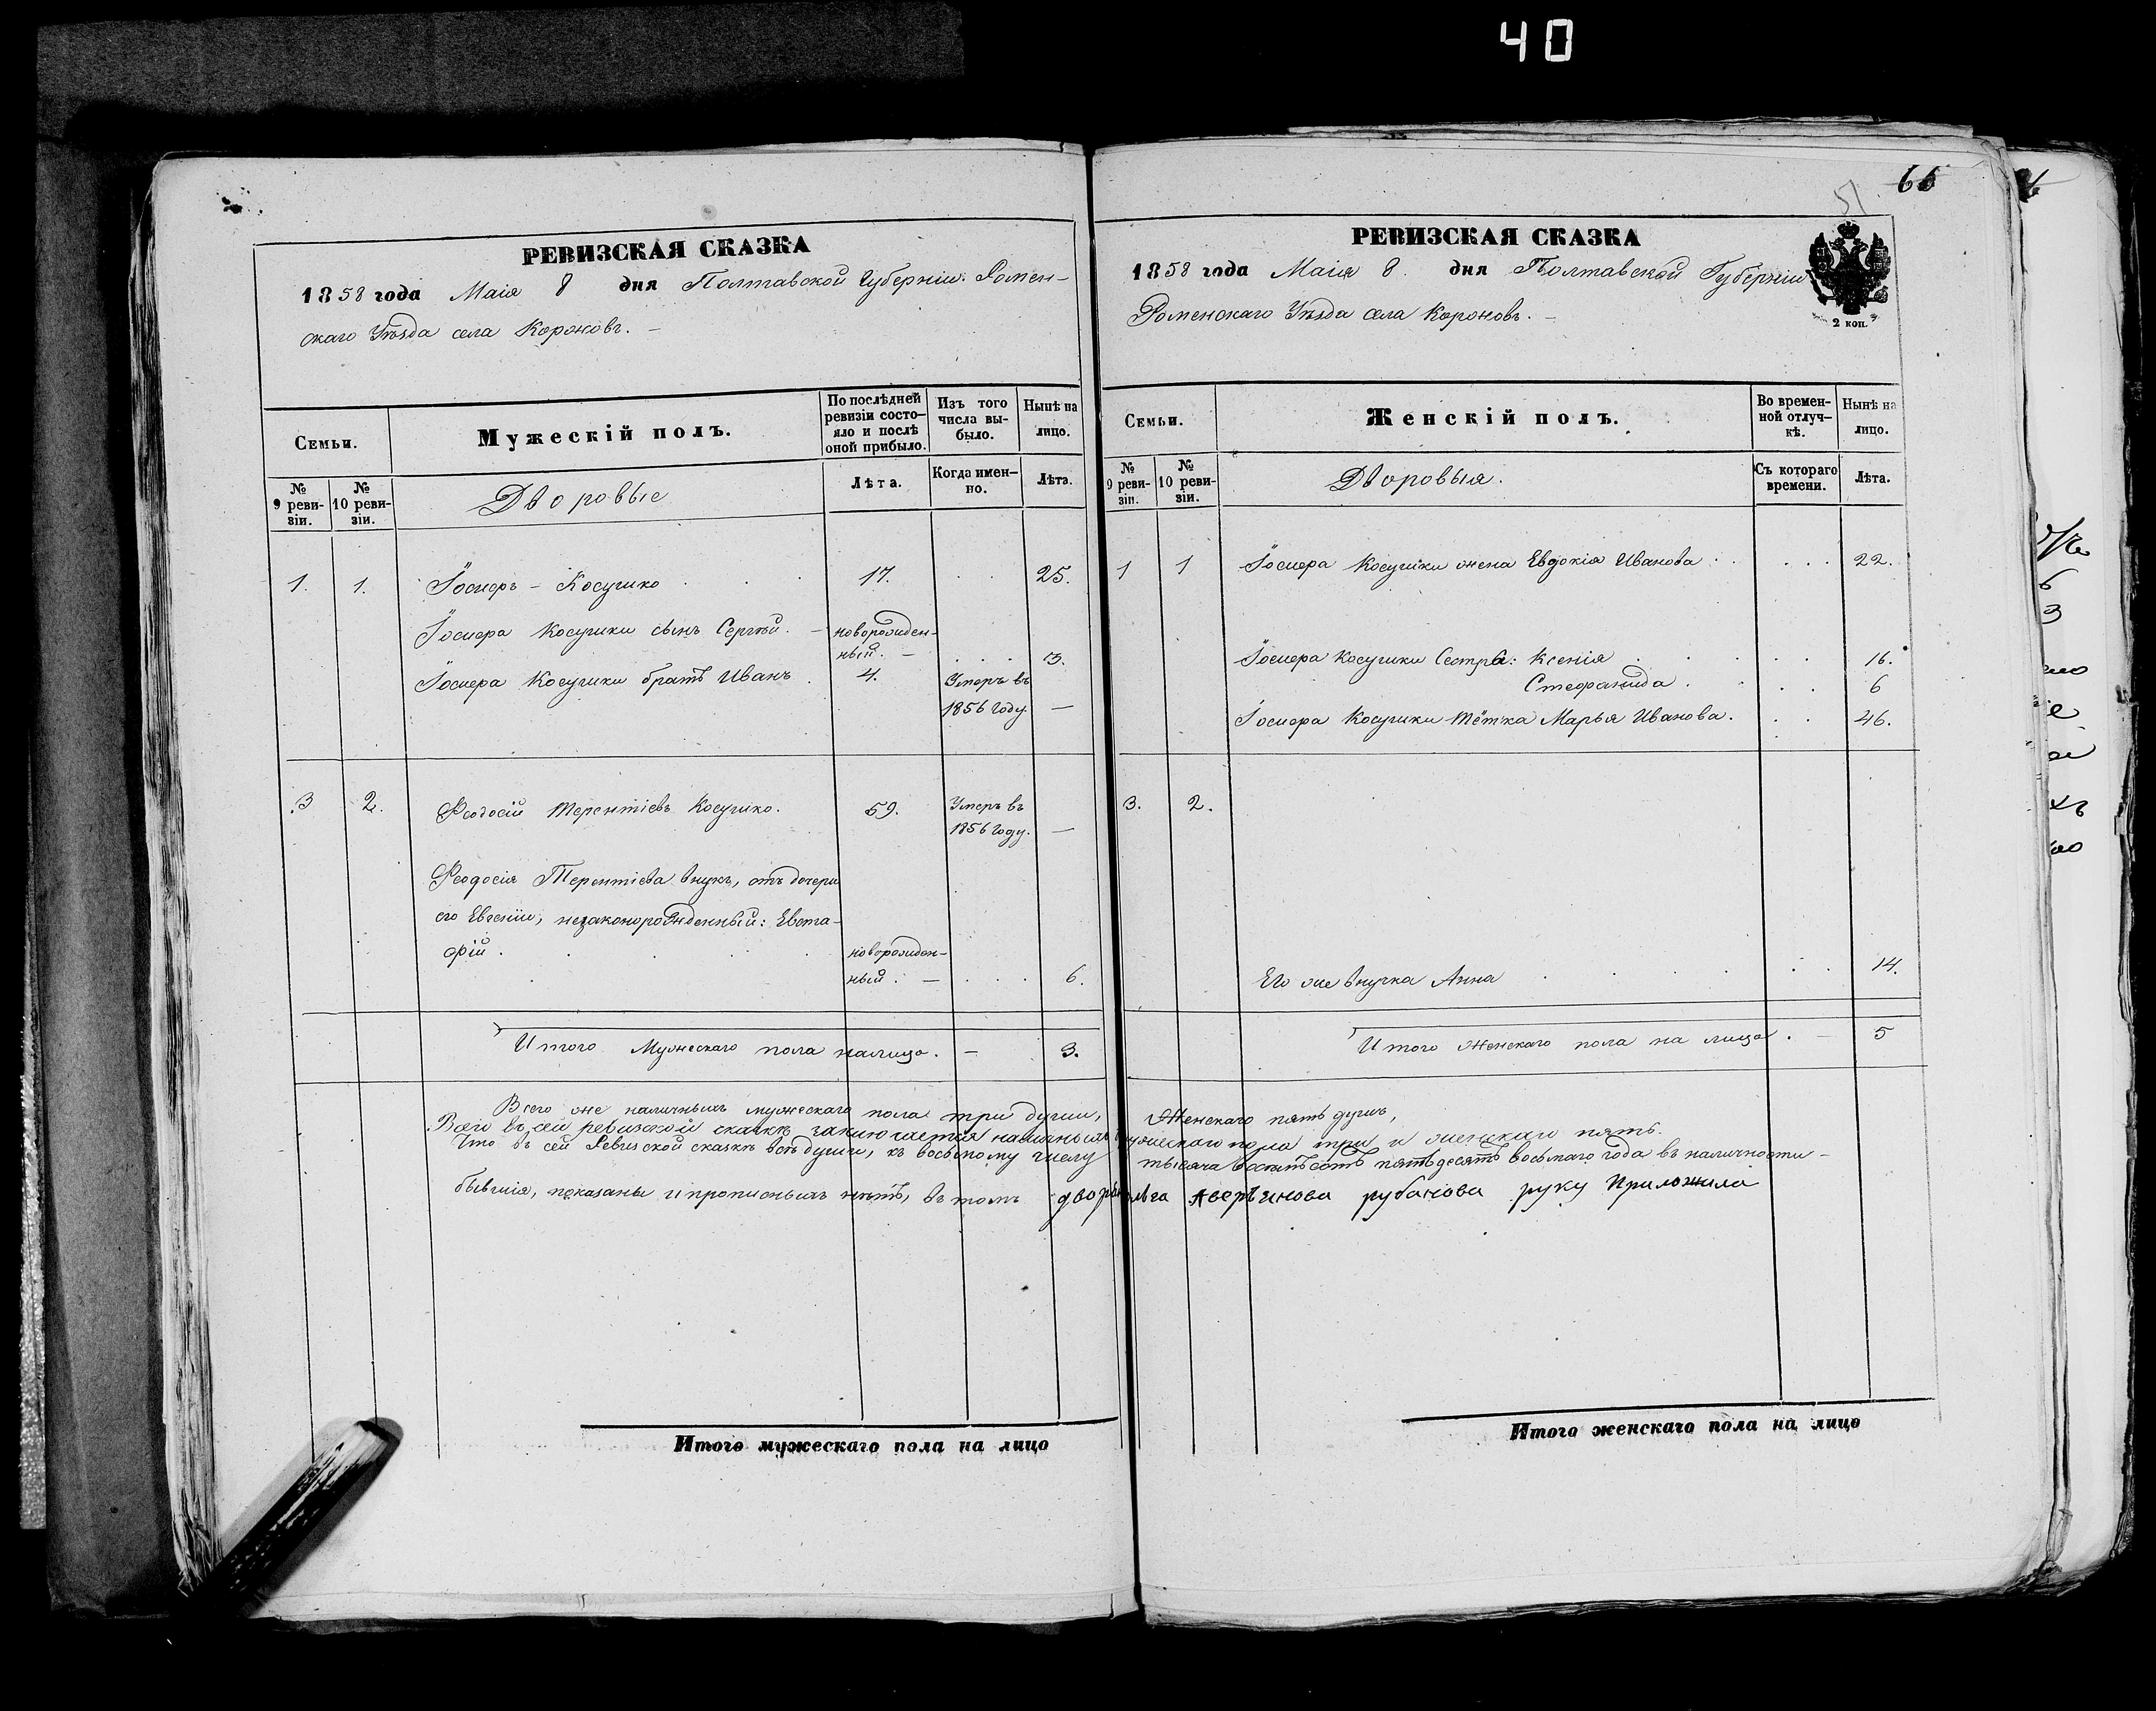 40
РЕВИЗСКАЯ СКАЗКА
1858 года Маія 8 дня Полтавской Губерніи Ромен-
скаго Уѣзда села Короновъ. –
Семьи.
Мужескій полъ.
По послѣдней
ревизіи состо-
яло и послѣ
оной прибыло.
Изъ того
числа вы-
было.
Нынѣ на
лицо.
№
9 реви-
зіи.
№
10 реви-
зіи.
Дворовые
Лѣта.
Когда имен-
но.
Лѣта.
1. 1. Іосифъ – Косушко . . . 17. . . 25.
Іосифа Косушки сынъ Сергѣй. – новорожден-
ный. – . . . 3.
Іосифа Косушки братъ Иванъ . 4. Умеръ въ
1856 году. —
3 2. Феодосій Терентіевъ Косушко. 59. Умеръ въ
1856 году. —
Феодосія Терентіева внукъ, отъ дочери
его Евгеніи, незаконорожденный: Евста-
фій . . . . . новорожден-
ный. – . . . 6.
Итого Мужескаго пола налицо. – 3.
66
51
РЕВИЗСКАЯ СКАЗКА
1858 года Маія 8. дня Полтавской Губерніи
Роменскаго Уѣзда села Короновъ. –
2 коп.
Семьи.
Женскій полъ.
Во времен-
ной отлуч-
кѣ.
Нынѣ на
лицо.
№
9 реви-
зіи.
№
10 реви-
зіи.
Дворовыя.
Съ котораго
времени.
Лѣта.
1 1 Іосифа Косушки жена Евдокія Иванова . . . . . 22.
Іосифа Косушки Сестра: Ксенія . . . . . 16.
Стефанида . . . . 6
Іосифа Косушки тётка Марья Иванова. . . 46.
3. 2.
Его же внучка Анна . . . . . . 14.
Итого женскаго пола на лицо . – 5
Всего же наличныхъ мужескаго пола три души, Женскаго пять душъ,
Всего въ сей ревизской сказкѣ заключается наличныхъ мужескаго пола три и женскаго пять.
Что въ сей Ревизской сказкѣ всѣ души, къ восьмому числу тысяча восемьсотъ пятьдесятъ восьмаго года въ наличности –
бывшія, показаны и прописныхъ нѣтъ, въ томъ Аверьянова рубанова руку Приложила
Итого мужескаго пола на лицо
Итого женскаго пола на лицо